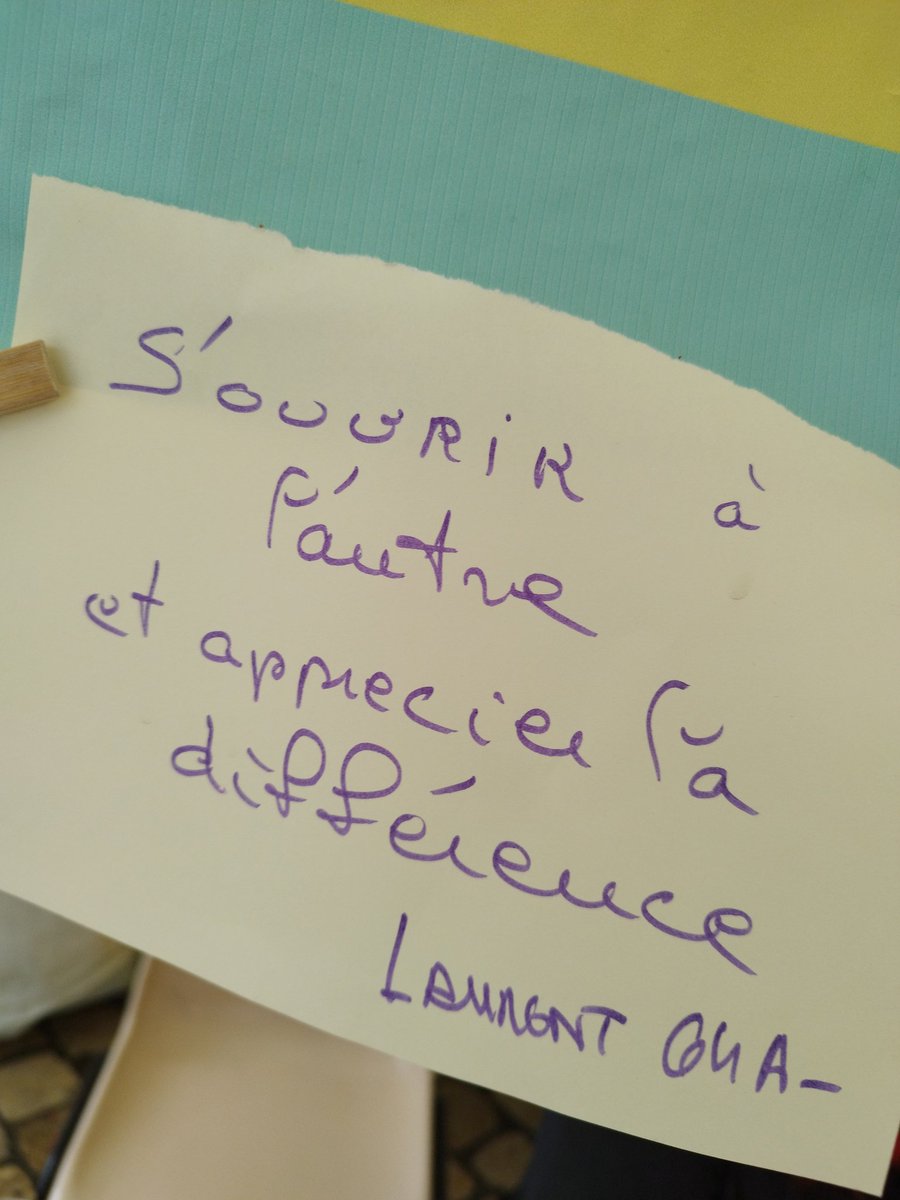 S'ouvrir à
l'autre
et apprecier la
différence
LAURENT 64A-